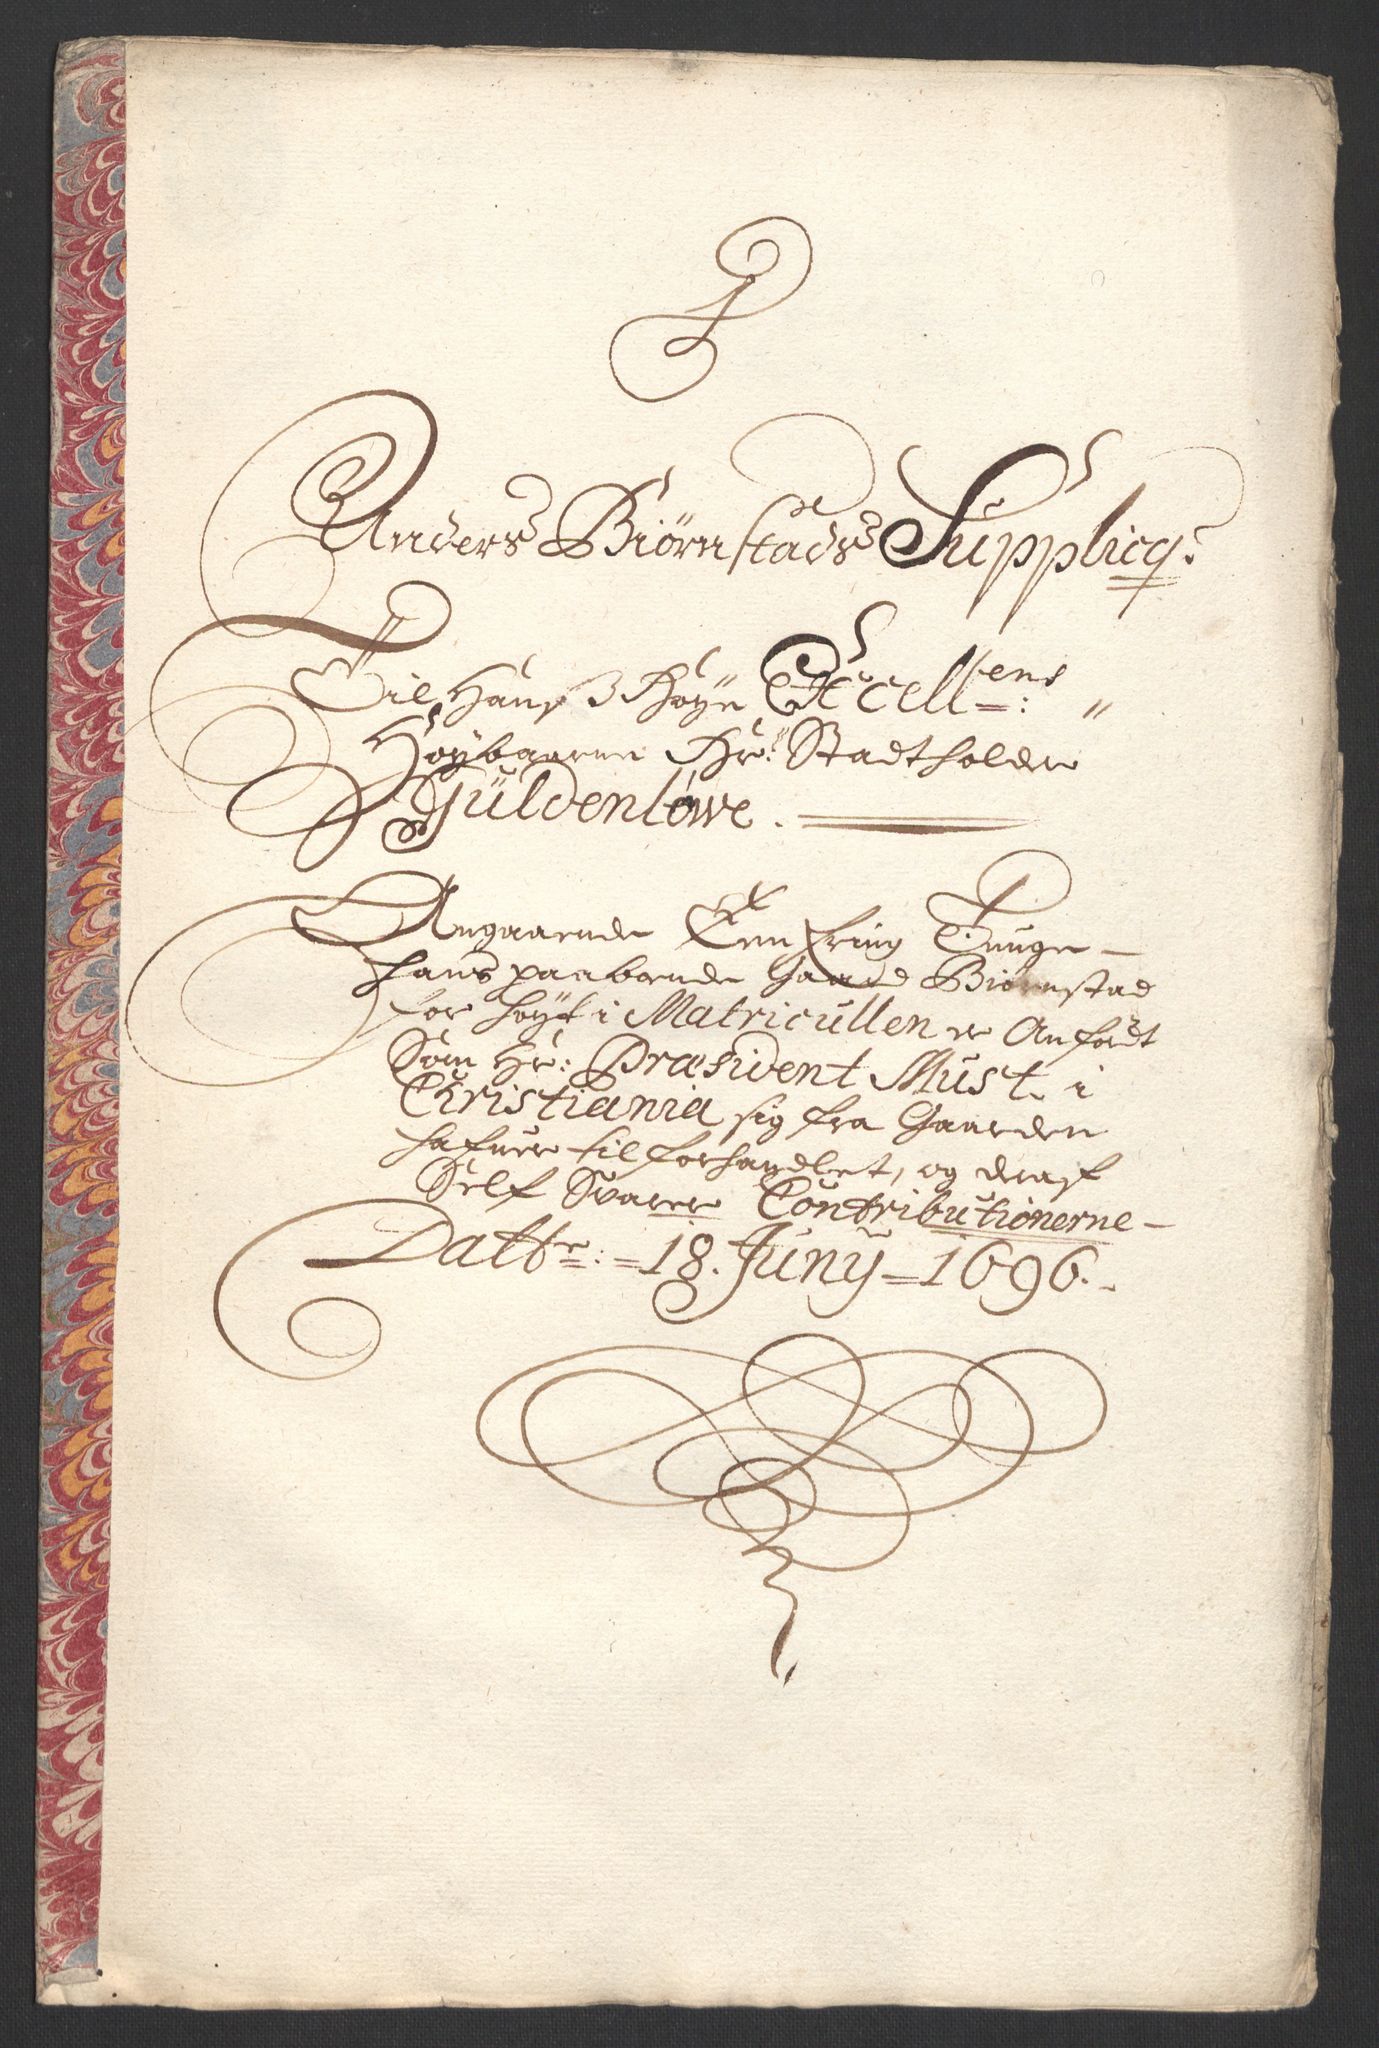 Anders Biørnstads Supplicq:
Til Hans Høye Excellens:
Høybaarne Hr: Stadtholder
Güldenløwe.
Angaaende Een Fring Tunge
hans paaboende Gaard Biørnstad
for høyt i Matricullen er Anfördt
Som Hr: Præsident Must. i
Christiania sig fra Gaarden
hafuer tilforhandlet, og deraf
Self Svarer Contributionerne
Datte: 18. Juny 1696.